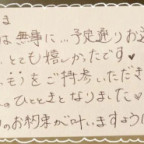 ま
は無事に…予定通りお逢
とても嬉しかったです♥
もう をご持参いただき
のひとときとなりました♡
のお約束が叶いますように